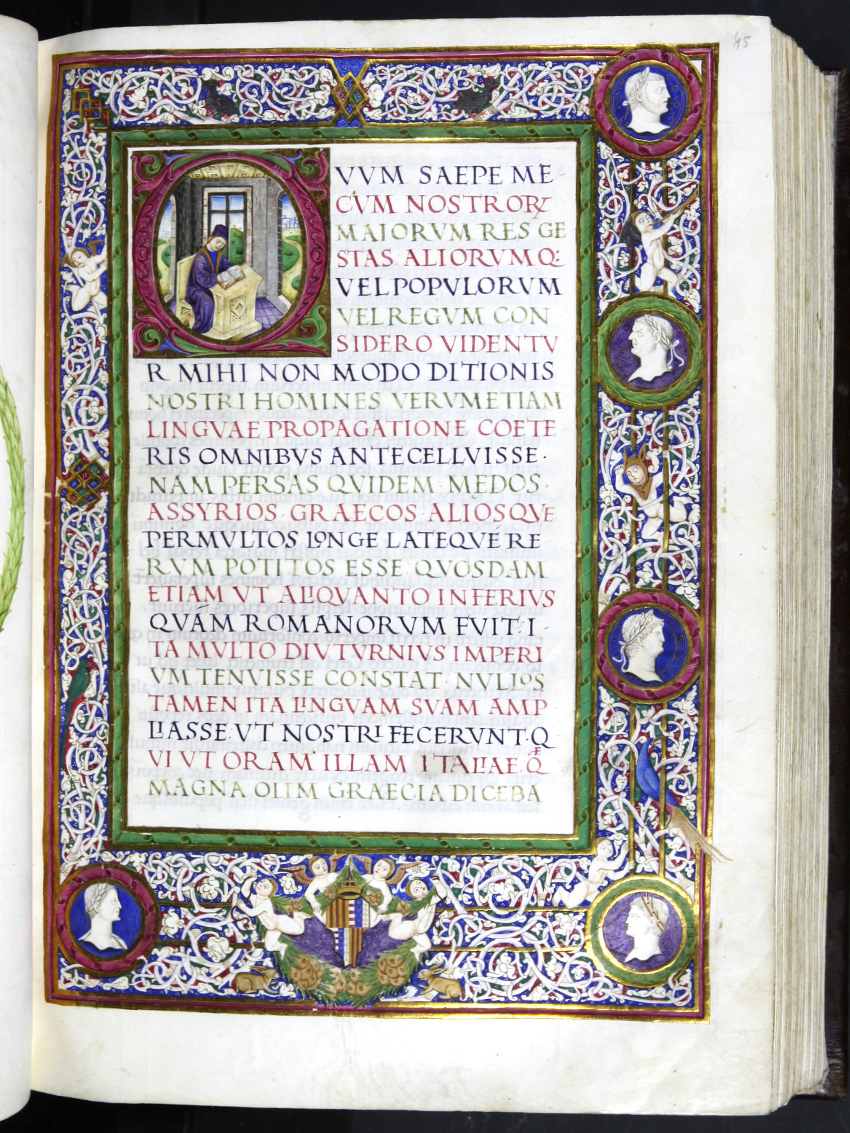 45
QVVM SAEPE ME
CVM NOSTRORꝜ
MAIORVM RES GE
STAS ALIORVM Q:
VEL POPVLORVM
VEL REGVM CON
SIDERO VIDENTV
R MIHI NON MODO DITIONIS
NOSTRI HOMINES VERVM ETIAM
LINGVAE PROPAGATIONE COETE
RIS OMNIBVS ANTECELLVISSE·
NAM PERSAS QVIDEM· MEDOS·
ASSYRIOS· GRAECOS· ALIOSQVE
PERMVLTOS LONGE LATEQVÉ RE
RVM POTITOS ESSE· QVOSDAM
ETIAM VT ALIQVANTO INFERIVS
QVÁM ROMANORVM FVIT· I·
TA MVLTO DIVTVRNIVS IMPERI
VM TENVISSE CONSTAT· NVLLOS
TAMEN ITA LINGVAM SVAM AMP
LIASSE· VT NOSTRI FECERVNT· Q
VI VT ORAM ILLAM ITALIAE· Q̄Æ
MAGNA OLIM GRAECIA DICEBA